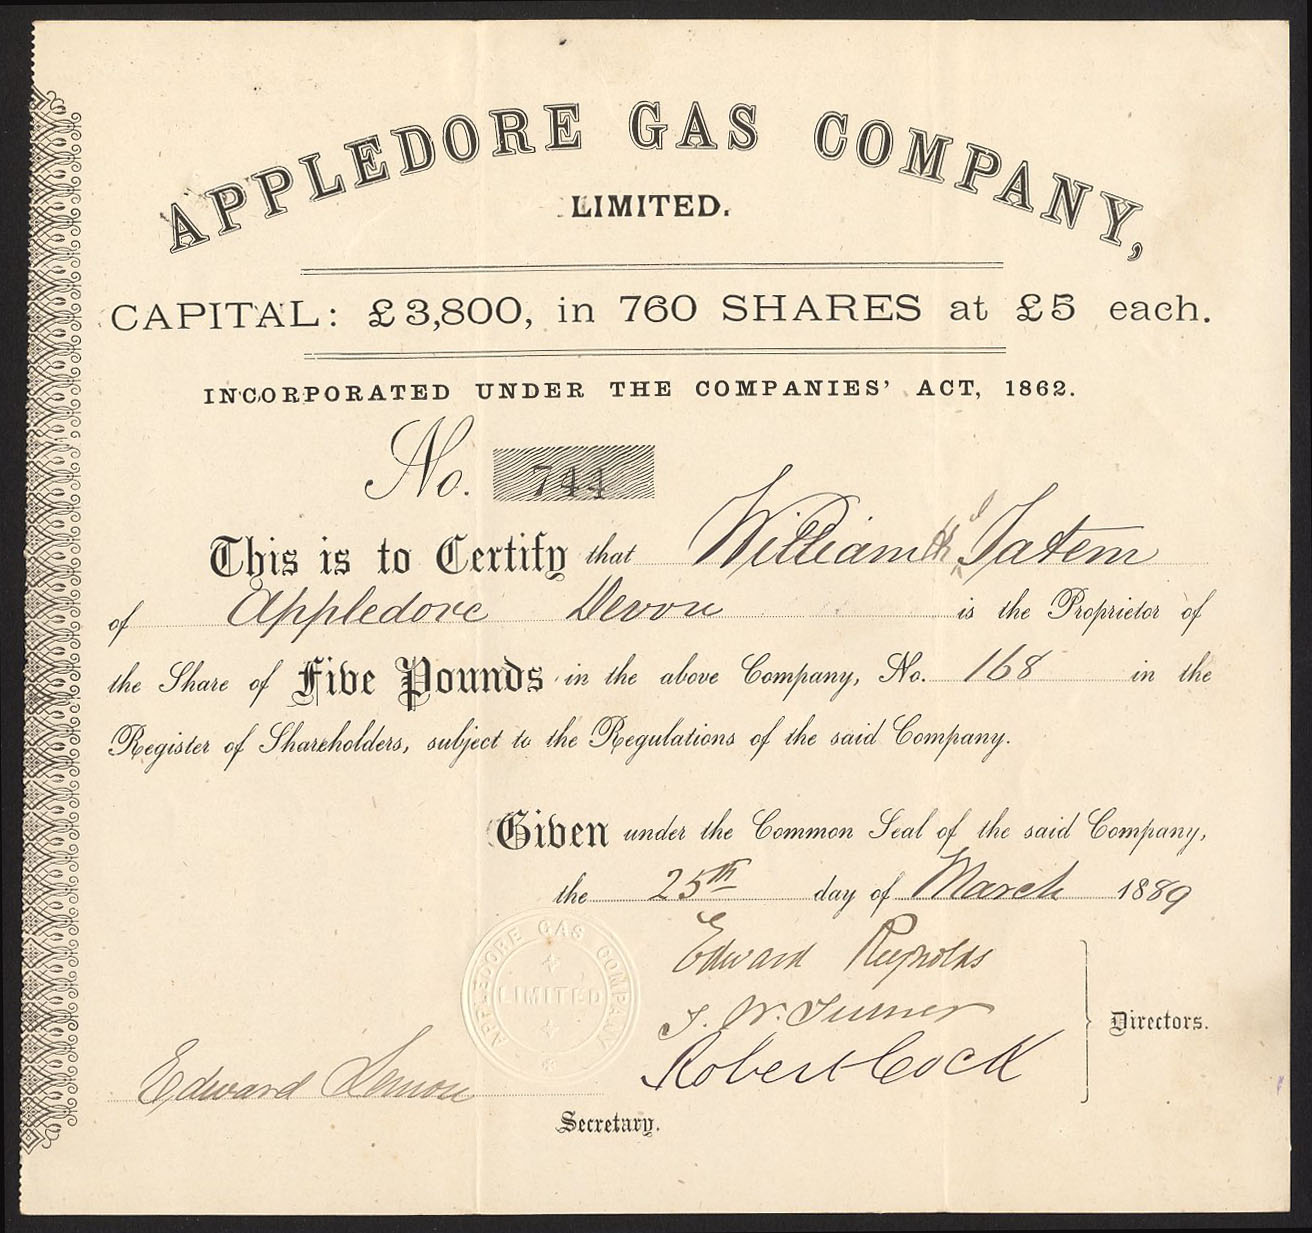 APPLEDORE GAS COMPANY,
LIMITED.
CAPITAL: £3,800, in 760 SHARES at £5 each.
INCORPORATED UNDER THE COMPANIES' ACT, 1862.
No. 744
This is to Certify that William Tatem
of Appledore Devon is the Proprietor of
the Share of Five Pounds in the above Company, No. 168 in the
Register of Shareholders, subject to the Regulations of the said Company.
Given under the Common Seal of the said Company,
the 25th day of March 1889
APPLEDORE GAS COMPANY
LIMITED
Edward Reynolds
T. W. Turner
Robert Cock
Directors.
Edward Lemon
Secretary.